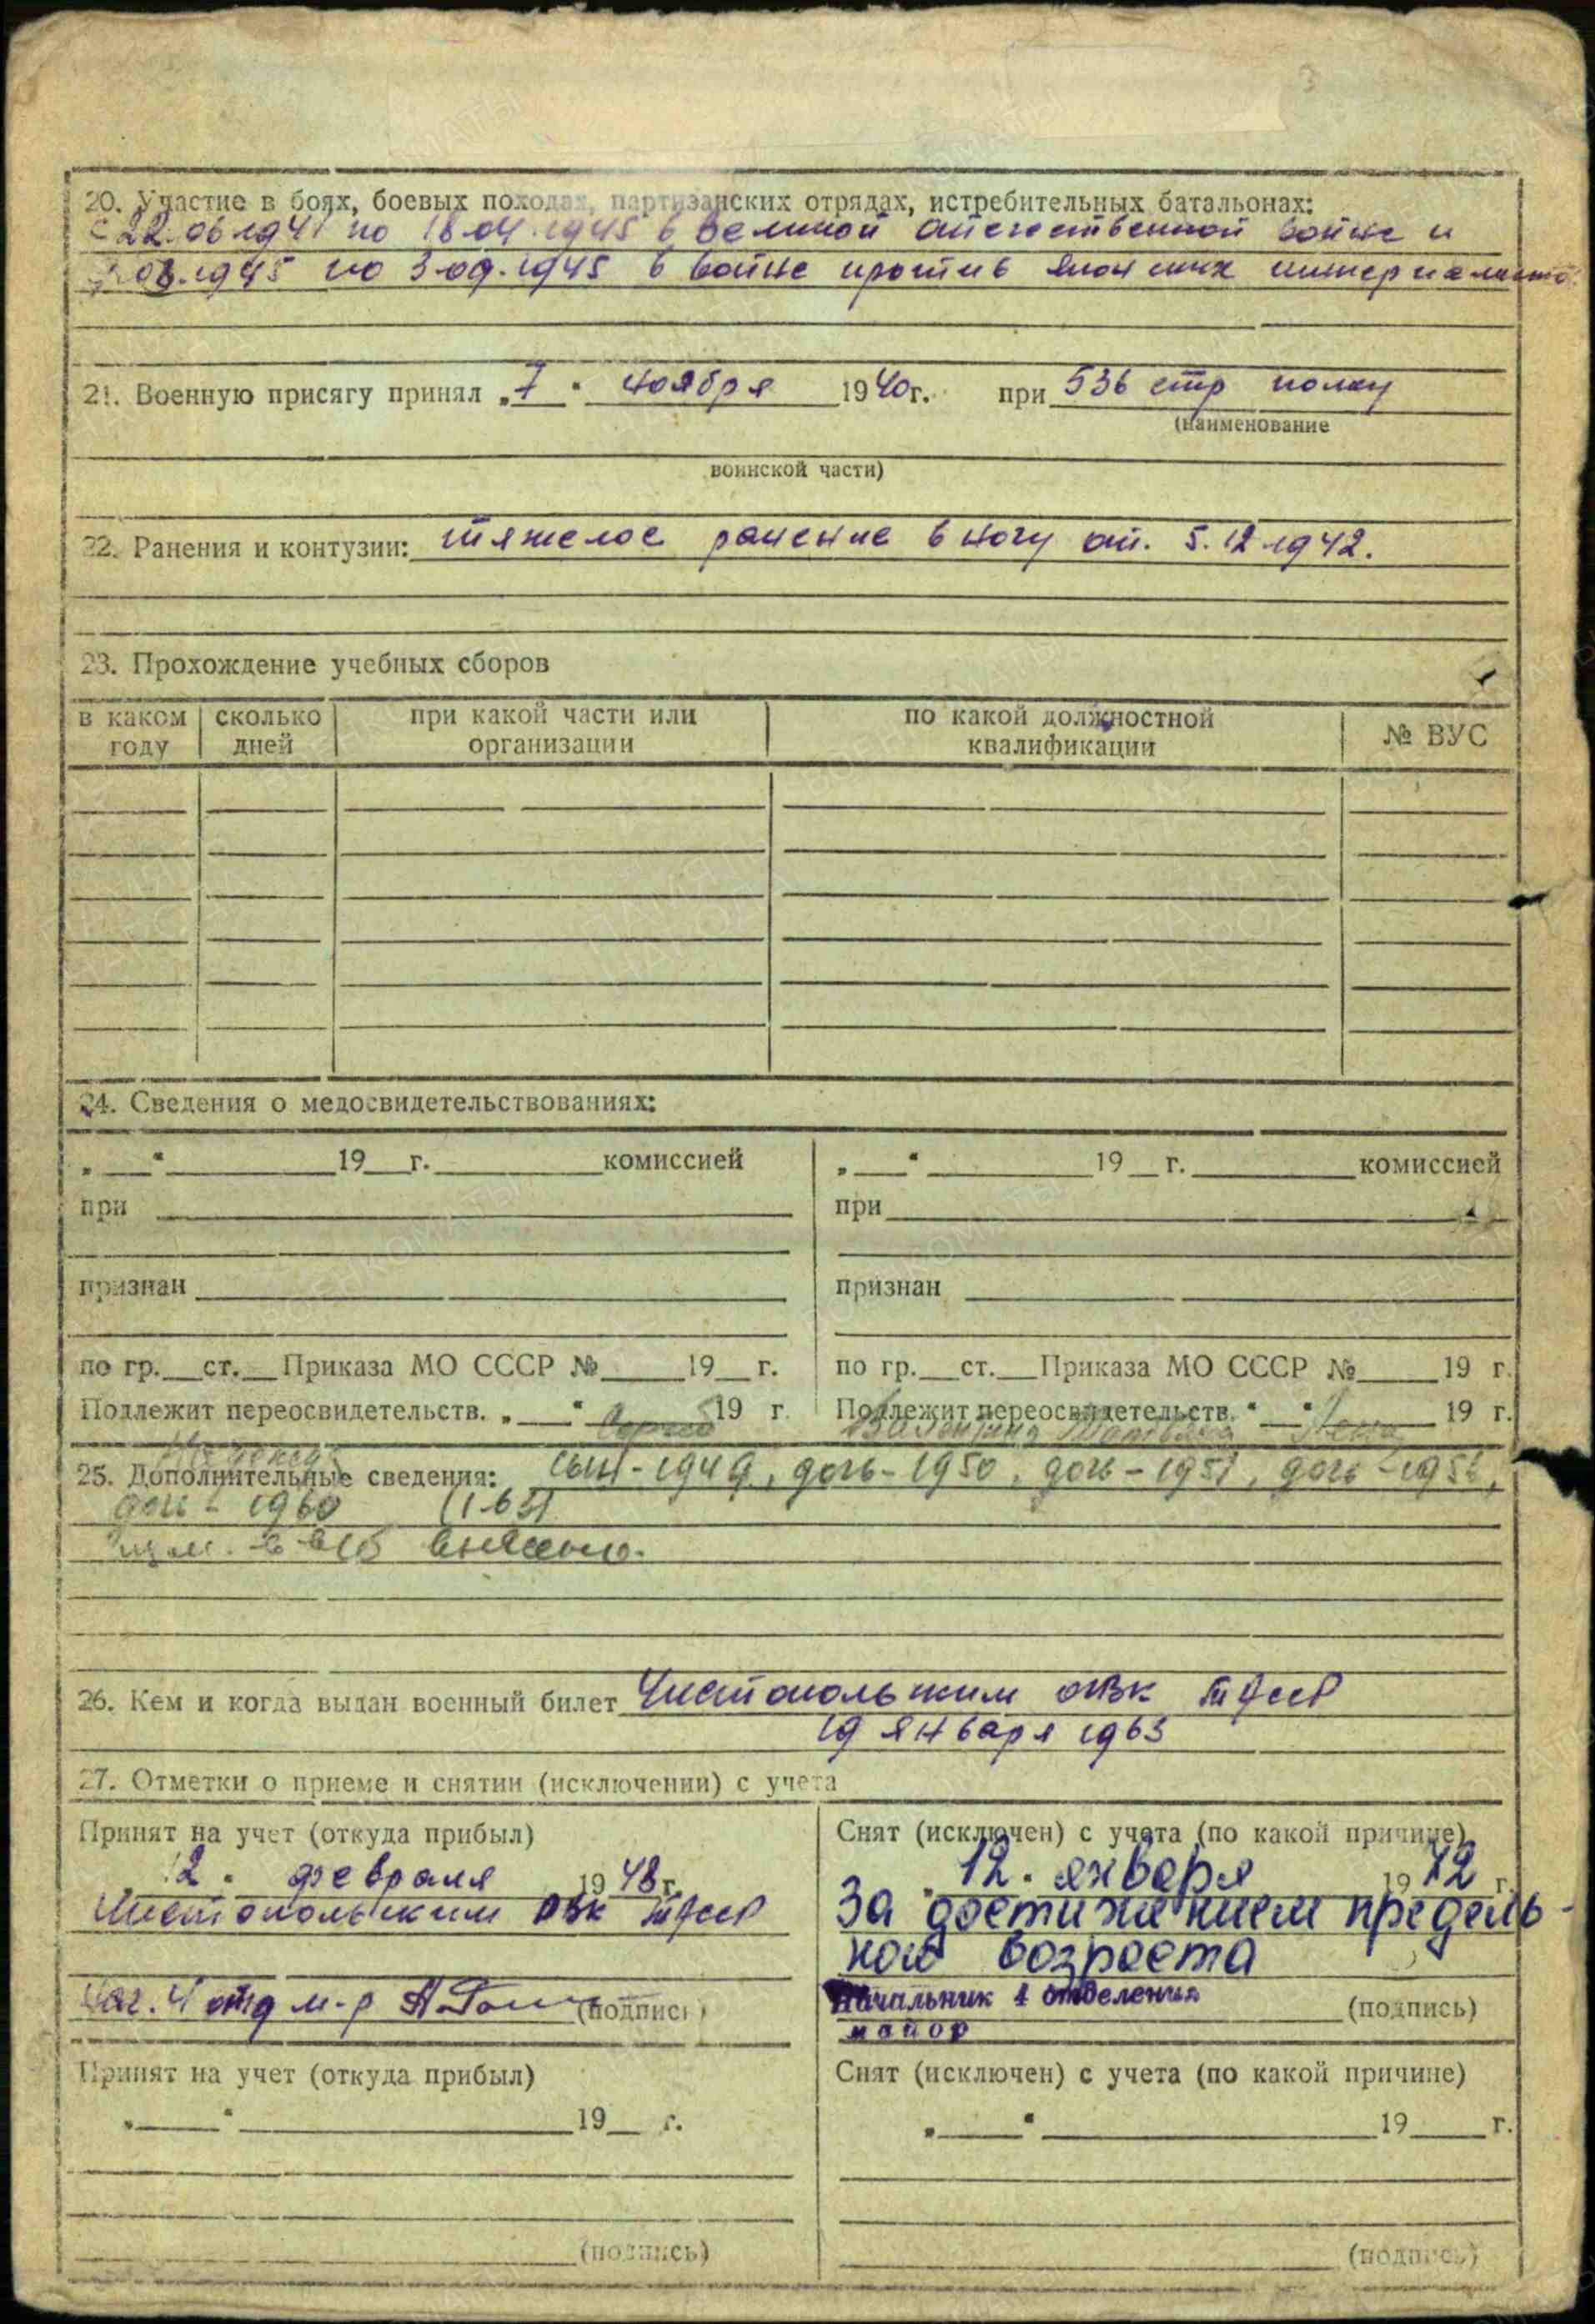 20. Участие в боях, боевых походах, партизанских отрядах, истребительных батальонах:
с 22.06.1941 по 18.04.1945 в Великой отечественной войне и
.08.1945 по 3.09.1945 в войне против японских империалисто
21. Военную присягу принял „7“ ноября 1940г. при 536 стр полку
(наименование
воинской части)
22. Ранения и контузии: тяжелое ранение в ногу от. 5.12.1942.
23. Прохождение учебных сборов
в каком году | сколько дней | при какой части или организации | по какой должностной квалификации | № ВУС
24. Сведения о медосвидетельствованиях:
„__“ 19__г. комиссией „__“ 19__г. комиссией
при при
признан признан
по гр.__ст.__Приказа МО СССР №__19__г. по гр.__ст.__Приказа МО СССР №__19 г.
Подлежит переосвидетельств. „__“ 19 г. Подлежит переосвидетельств. „__“ 19 г.
Валентина Лена
25. Дополнительные сведения: сын-1949, дочь-1950, дочь-1951, дочь-195
дочь-1960
внесено.
26. Кем и когда выдан военный билет Чистопольским ОВК ТАССР
19 января 1963
27. Отметки о приеме и снятии (исключении) с учета
Принят на учет (откуда прибыл) Снят (исключен) с учета (по какой причине)
12. февраля 1948г. 12. января 1972 г.
Чистопольским РВК ТАССР За достижением предель-
ного возраста
Нач. 4 отд м-р (подпись) Начальник 4 отделения (подпись)
майор
Принят на учет (откуда прибыл) Снят (исключен) с учета (по какой причине)
„__“ 19__ г. „__“ 19__ г.
(подпись) (подпись)